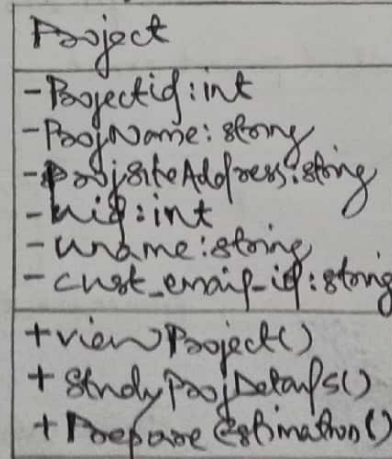 Project
-Projectid:int
-ProjName:string
-ProjSiteAddress:string
-uid:int
-uname:string
-cust_email_id:string
+viewProject()
+StudyProjDetails()
+PrepareEstimation()